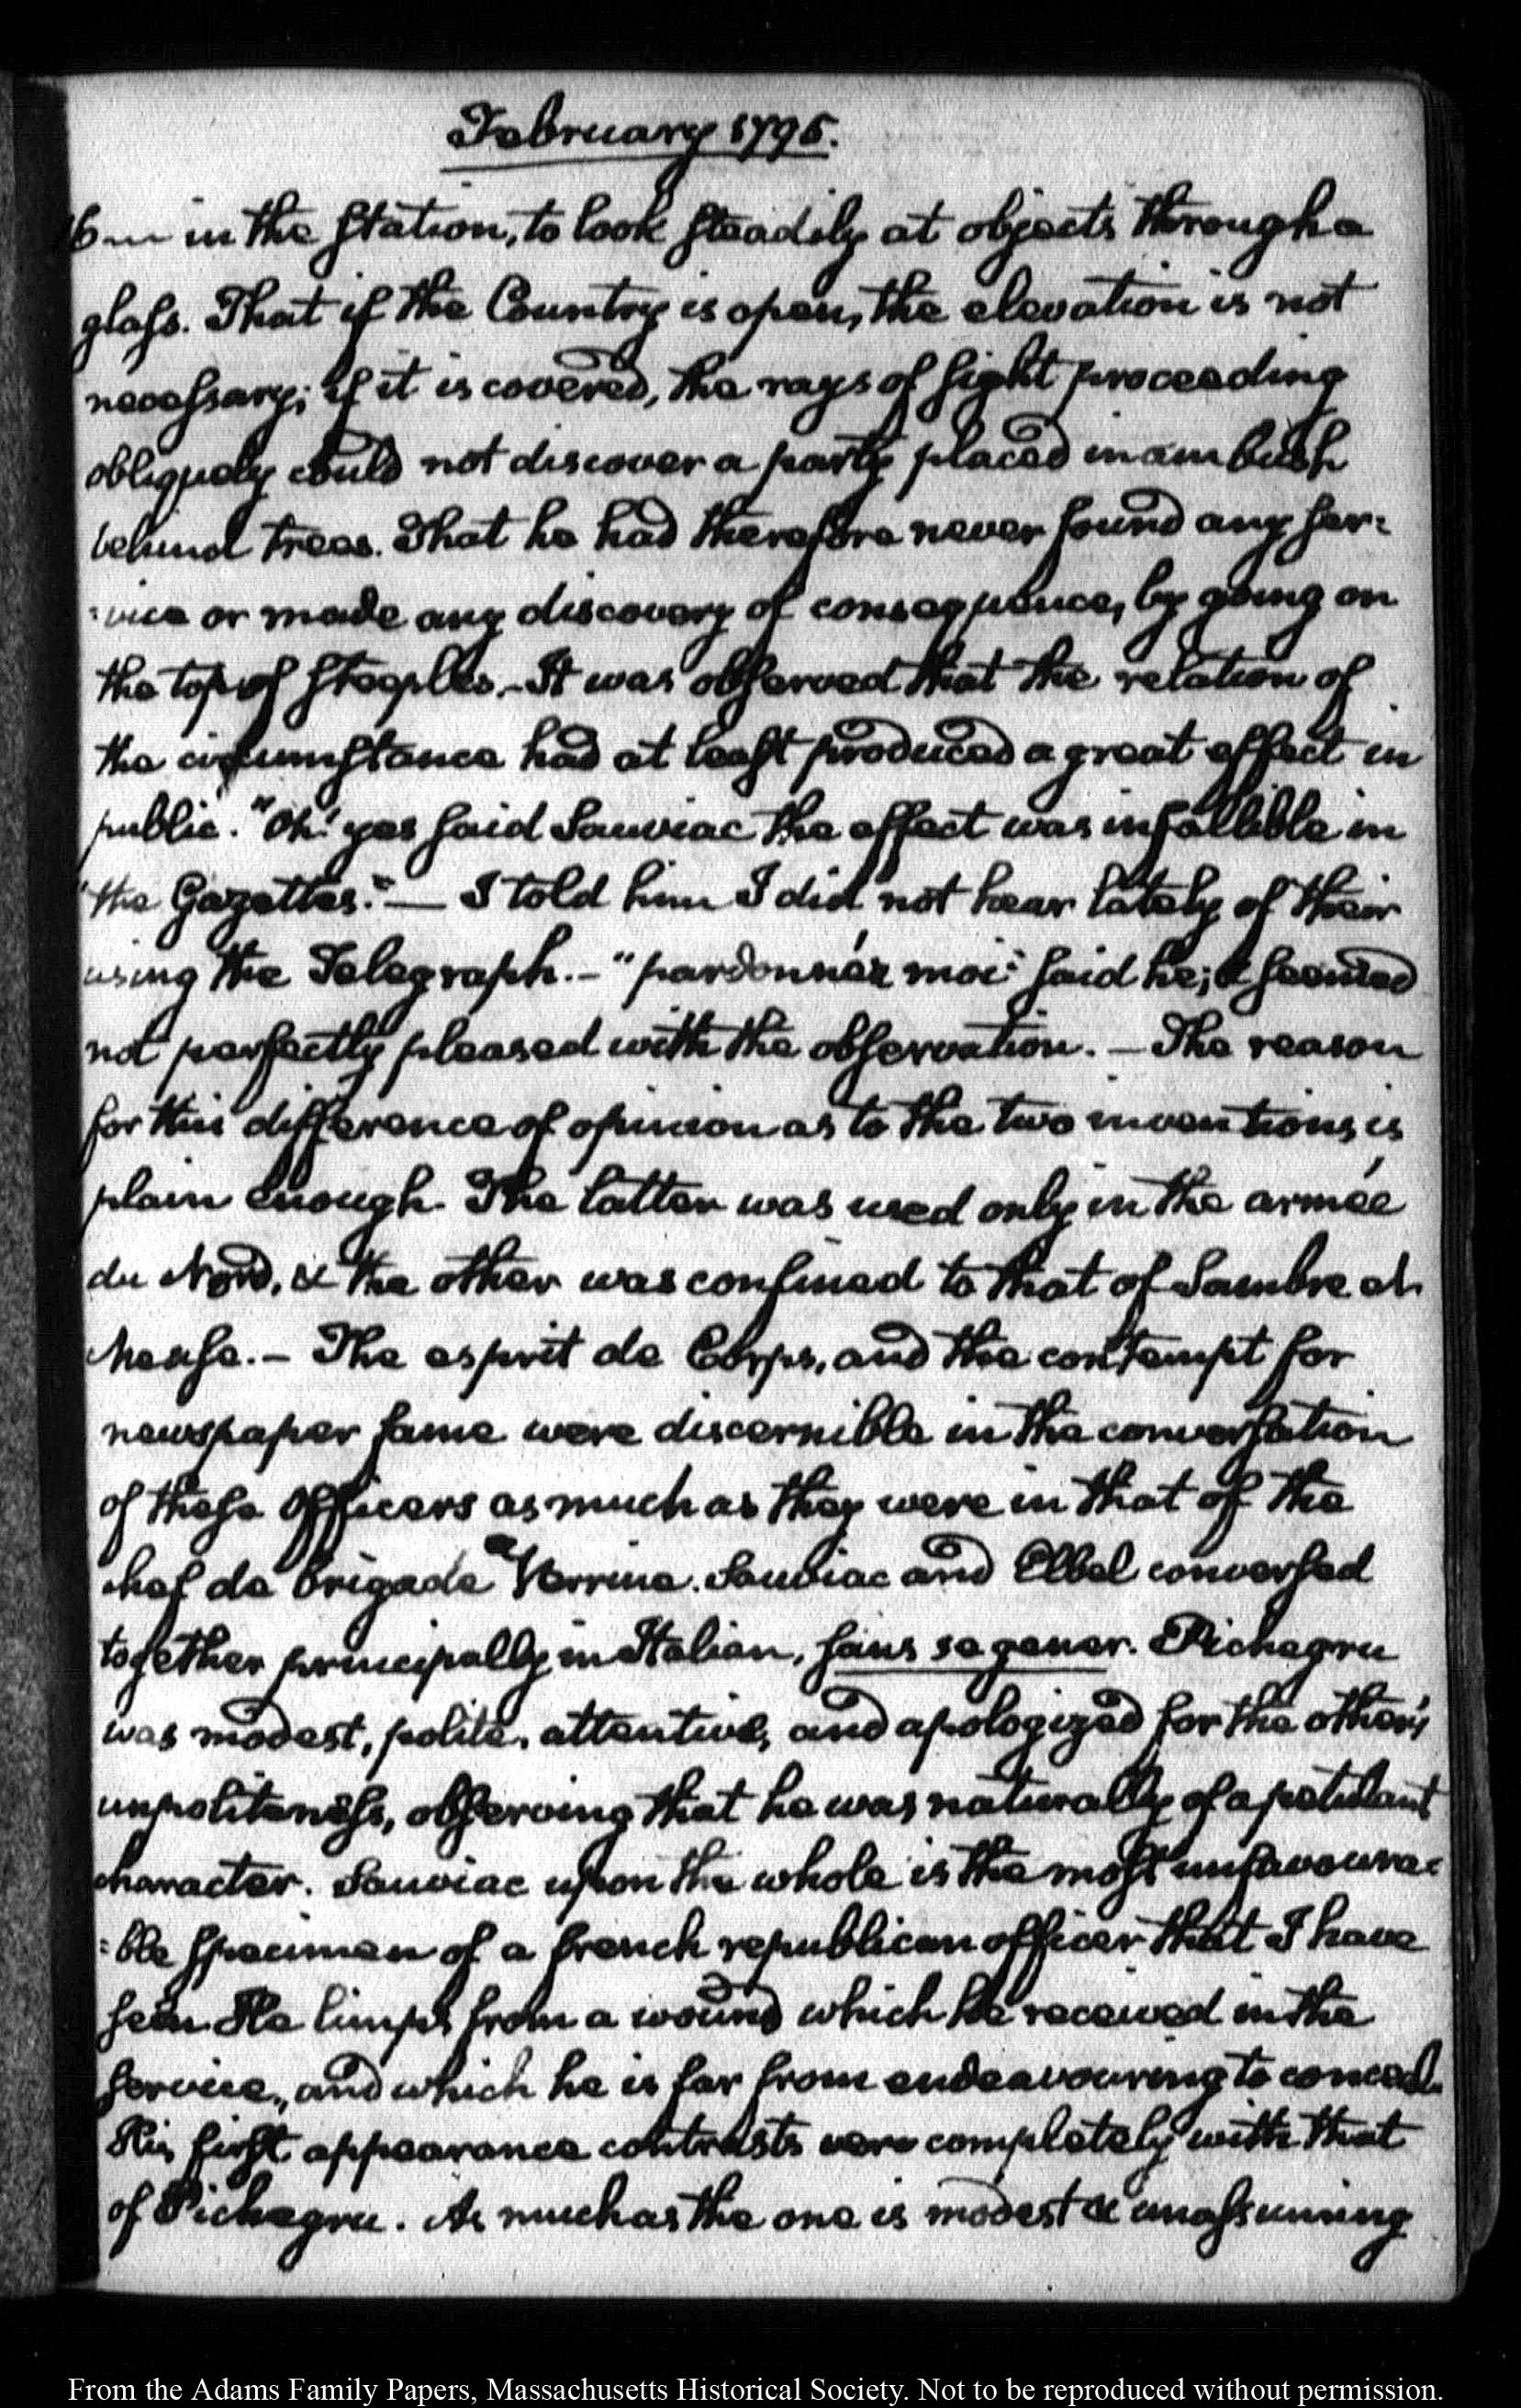 February 1795.
16 in the Station, to look steadily at objects through a
glass. That if the Country is open, the elevation is not
necessary; if it is covered, the rays of sight proceeding
obliquely could not discover a party placed in ambush
behind trees. That he had therefore never found any ser=
=vice or made any discovery of consequence, by going on
the top of Steeples.- It was observed that the relation of
the circumstance had at least produced a great effect in
public. "Oh! yes said Sauviac the effect was infallible in
"the Gazettes." — I told him I did not hear lately of their
using the Telegraph. - "pardonnéz moi" said he; & seemed
not perfectly pleased with the observation. — The reason
for this difference of opinion as to the two inventions, is
plain enough. The latter was used only in the armée
du Nord, & the other was confined to that of Sambre et
Meuse. - The esprit de Corps, and the contempt for
newspaper fame were discernible in the conversation
of these Officers as much as they were in that of the
chef de brigade a Verrine. Sauviac and Elbel conversed
together principally in Italian, sans se gener. Pichegru
was modest, polite, attentive, and apologized for the other's
unpoliteness, observing that he was naturally of a petulant
character. Sauviac upon the whole is the most unfavoura=
=ble specimen of a french republican officer that I have
seen. He limps from a wound which he received in the
service, and which he is far from endeavouring to conceal.
His first appearance contrasts very completely with that
of Pichegru. As much as the one is modest & unassuming
From the Adams Family Papers, Massachusetts Historical Society. Not to be reproduced without permission.